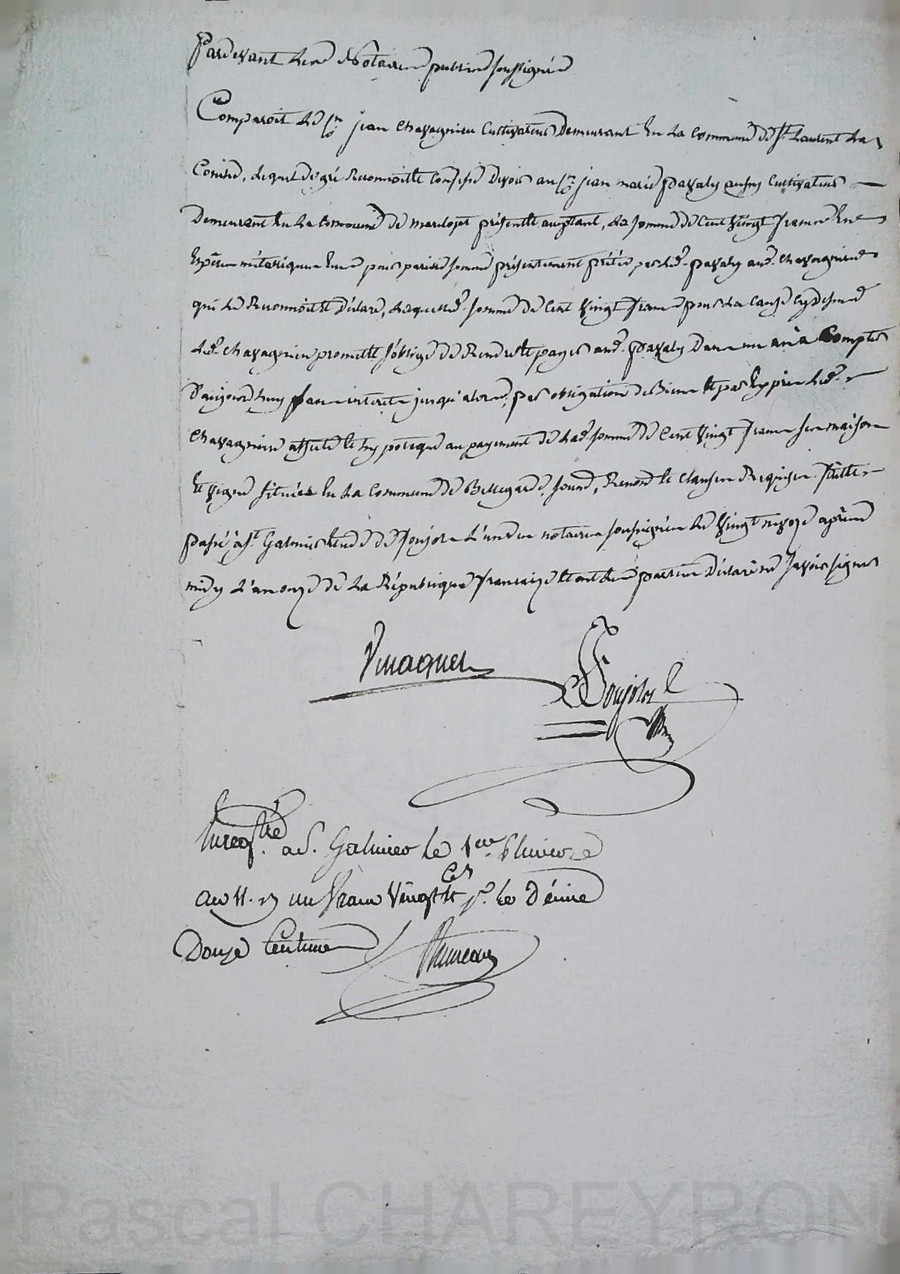 Pardevant Les Notaires publics soussignés
Comparoit Le Sr jean Chavagnieu Cultivateur Demeurant En La Commune de St Laurent La
Conche, Lequel de gré Reconnoit Et Confesse Devoir au Sr jean marie pavaly aussy Cultivateur
Demeurant En La Commune de marclopt présent Et acceptant, La somme de Cent Vingt francs En
Espèces métaliques somme présentement prêtée par led. pavaly aud. Chavagnieu
qui Le Reconnoit Et Déclare, Laquelle d. somme de Cent Vingt francs pour La Cause cy dessus
Led. Chavagnieu promet Et s'oblige de Rendre Et payer aud. pavaly Dans un an à Compter
D'aujourd'huy sans intérêts jusqu'alors, par obligation de Biens Et par Exprès Led.
Chavagnieu affecte Et hypotèque au payement de Lad. somme de Cent Vingt francs ses maison
Et Vigne situées En La Commune de Bellegarde, soumd. Renond. Et Clauses Requises. fait Et
passé à St Galmier Etude de Soujole L'un des notaires soussignés Le Vingt nivose après
midy L'an onze de La République française Et ont Les parties Déclaré ne savoir signer
Vinagner
Soujole
Enregtré a St. Galmier Le 1er Pluviose
an 11. R un franc Vingt Cen Et pr. Le Décime
Douze Centimes
Pascal CHAREYRON